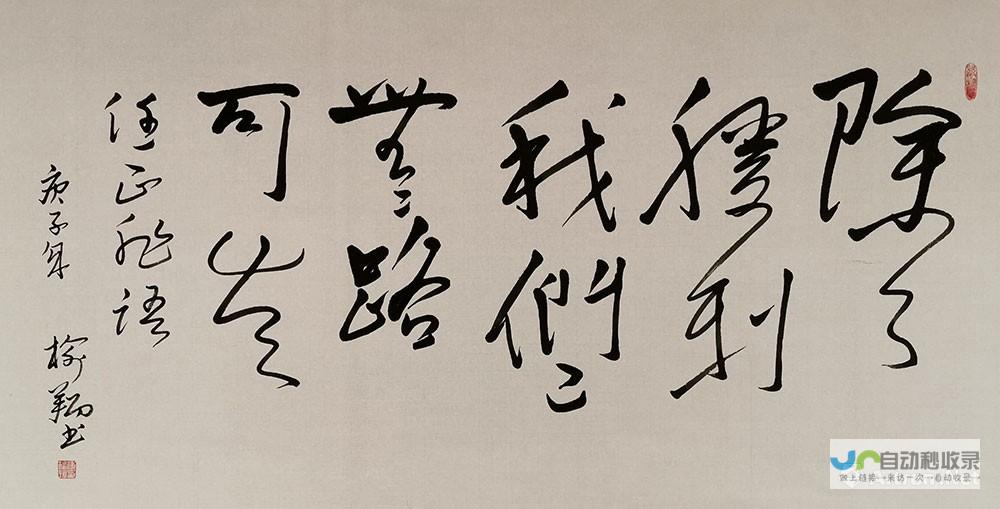 除了
勝利
我們已
無路
可走
任正非語
庚子年 榆翔书
自动秒收录
做上链接→来访一次→自动收录